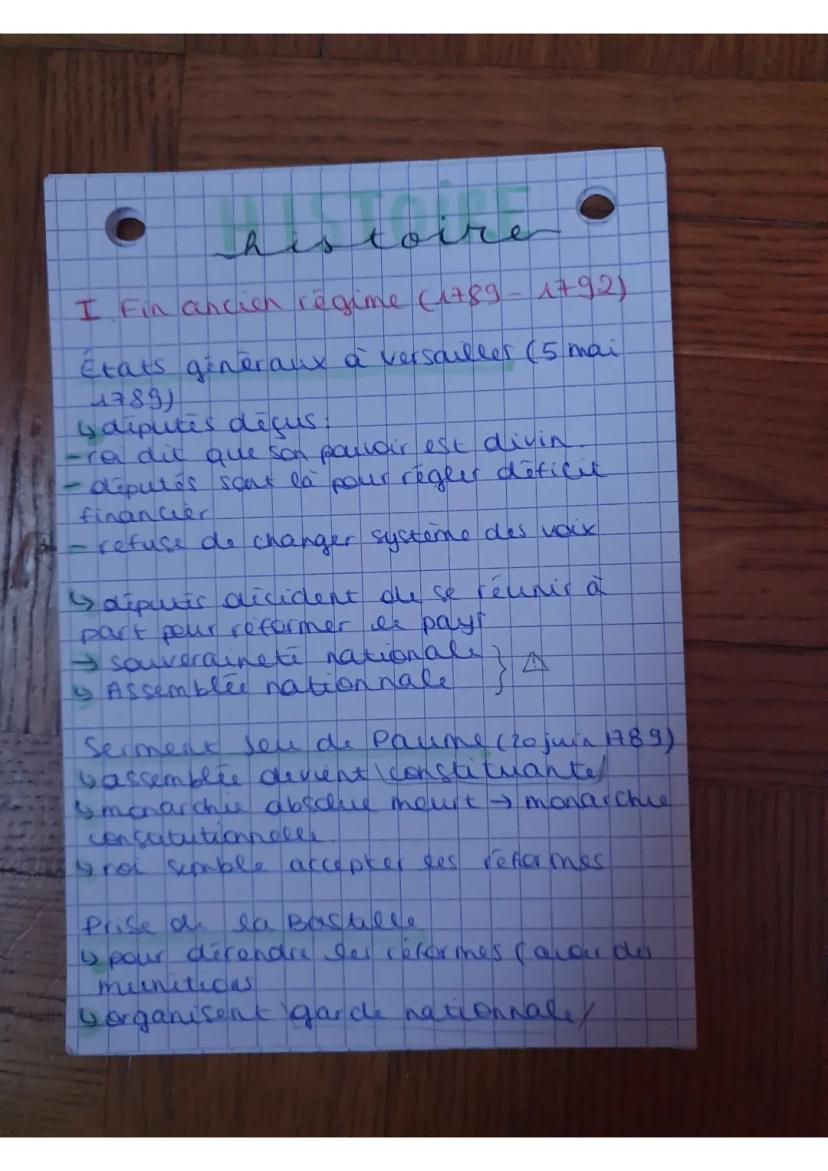 HISTOIRE
histoire
I Fin ancien régime (1789 - 1792)
États généraux à Versailles (5 mai
1789)
↳ députés déçus:
- roi dit que son pouvoir est divin
- députés sont là pour régler déficit
financier
- refuse de changer système des voix
↳ députés décident de se réunir à
part pour réformer le pays
→ souveraineté nationale } ⚠
↳ Assemblée nationnale
Serment Jeu de Paume (20 juin 1789)
↳ assemblée devient \constituante/
↳ monarchie absolue meurt → monarchie
constitutionnelle
↳ roi semble accepter les réformes
Prise de la Bastille
↳ pour défendre les réformes (avoir des
munitions
↳ organisent \garde nationnale/